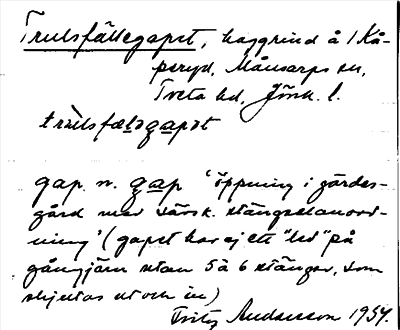 Trulsfällegapet, haggrind å 1 Kå-
peryd, Månsarps sn,
Tveta hd, Jönk. l.
trùlsfæləgapət
gap. n. gap 'öppning i gärdes-
gård med särsk. stängselanord-
ning' (gapet har ej ett "led" på
gångjärn utan 5 à 6 stänger, som
skjutas ut och in)
Fritz Andersson 1934.